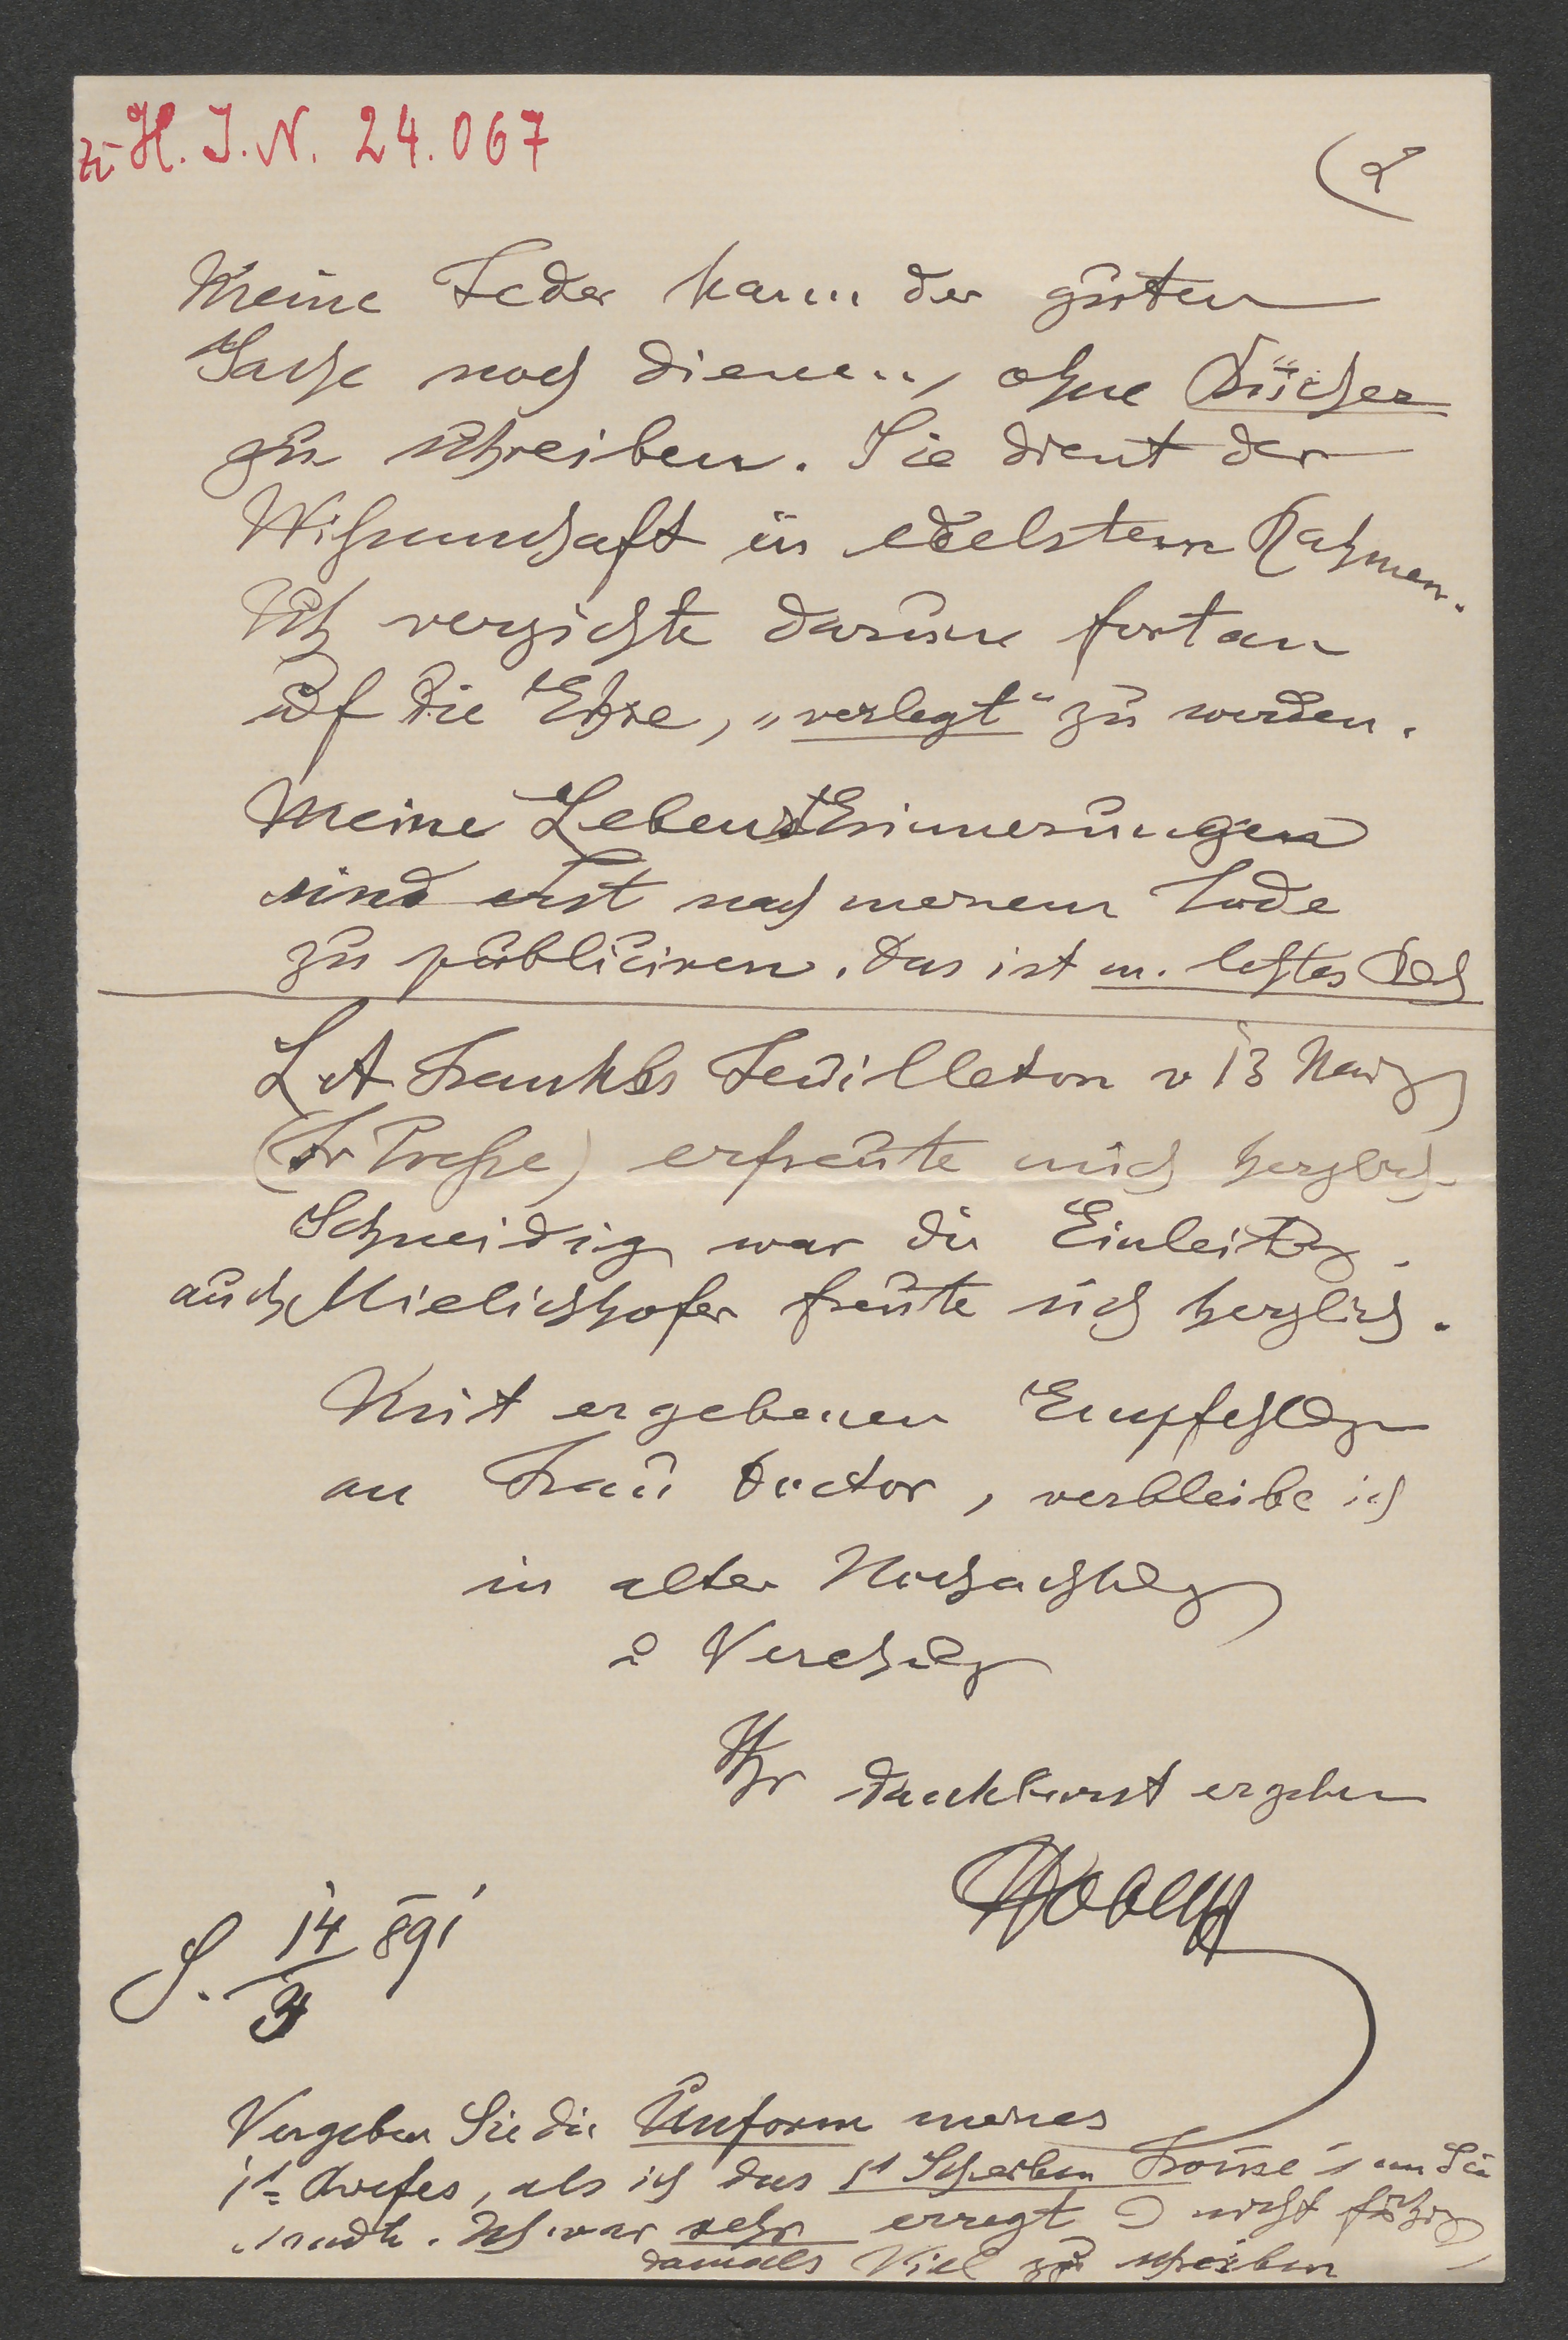 zu H. I. N. 24.067
(2
Meine Feder kann der guten
Sache noch dienen, ohne Bücher
zu schreiben. Sie dient der
Wißenschaft in edelstem Rahmen.
Ich verzichte darum fortan
auf die Ehre, „verlegt“ zu werden.
Meine LebensErinnerungen
sind erst nach meinem Tode
zu publiciren. Das ist m. letztes Buch
L A Frankls Feuilleton v 13 März
(Fr Preße) erfreute mich herzlich
Schneidig war die Einleitg.
auch Mielichhofer freute sich herzlich.
Mit ergebenen Empfehlgn
an Frau Doctor, verbleibe ich
in alter Hochachtug
u Verehrug
Ihr dankbarst ergeben
S. 14/3 891
Vergeben Sie die Unform meines
1t Briefes, als ich das 1t Schreiben an Sie
sandte. Ich war sehr erregt u nicht fähig,
damals Viel zu schreiben